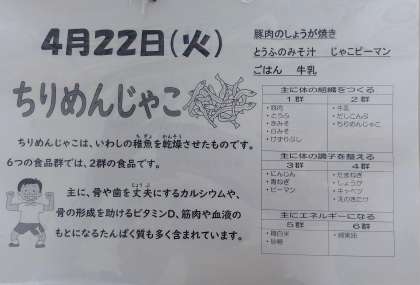 4月22日(火)
ちりめんじゃこ
ちりめんじゃこは、いわしの稚魚を乾燥させたものです。
6つの食品群では、2群の食品です。
主に、骨や歯を丈夫にするカルシウムや、
骨の形成を助けるビタミンD、筋肉や血液の
もとになるたんぱく質も多く含まれています。
豚肉のしょうが焼き
とうふのみそ汁 じゃこピーマン
ごはん 牛乳
主に体の組織をつくる
1群 2群
・豚肉 ・牛乳
・とうふ ・だしこんぶ
・赤みそ ・ちりめんじゃこ
・白みそ
・けずりぶし
主に体の調子を整える
3群 4群
・にんじん ・たまねぎ
・青ねぎ ・しょうが
・ピーマン ・キャベツ
・えのきたけ
主にエネルギーになる
5群 6群
・精白米
・砂糖